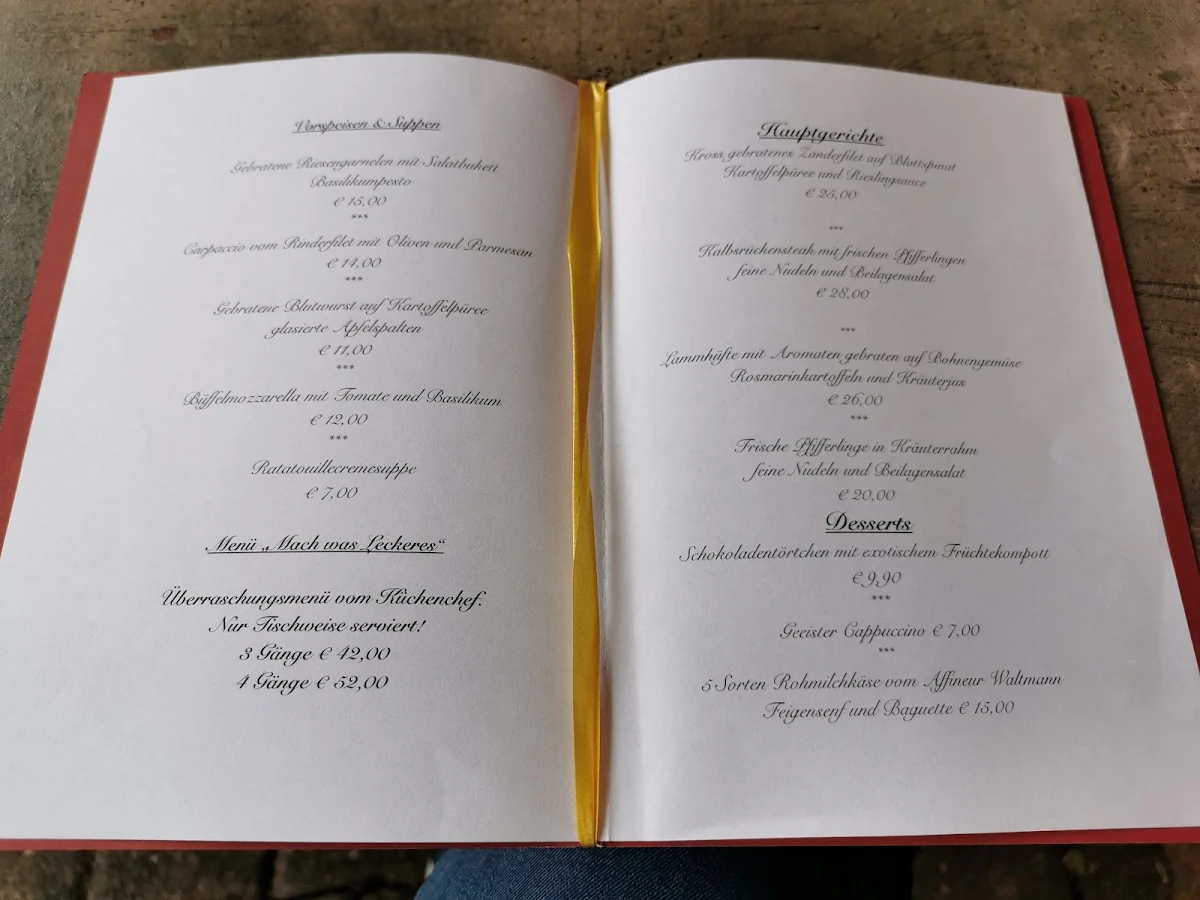 Vorspeisen & Suppen
Gebratene Riesengarnelen mit Salatbukett
Basilikumpesto
€ 15,00
***
Carpaccio vom Rinderfilet mit Oliven und Parmesan
€ 14,00
***
Gebratene Blutwurst auf Kartoffelpüree
glasierte Apfelspalten
€ 11,00
***
Büffelmozzarella mit Tomate und Basilikum
€ 12,00
***
Ratatouillecremesuppe
€ 7,00
Menü „Mach was Leckeres“
Überraschungsmenü vom Küchenchef.
Nur Tischweise serviert!
3 Gänge € 42,00
4 Gänge € 52,00
Hauptgerichte
Kross gebratenes Zanderfilet auf Blattspinat
Kartoffelpüree und Rieslingsauce
€ 25,00
***
Kalbsrückensteak mit frischen Pfifferlingen
feine Nudeln und Beilagensalat
€ 28,00
***
Lammhüfte mit Aromaten gebraten auf Bohnengemüse
Rosmarinkartoffeln und Kräuterjus
€ 26,00
***
Frische Pfifferlinge in Kräuterrahm
feine Nudeln und Beilagensalat
€ 20,00
Desserts
Schokoladentörtchen mit exotischem Früchtekompott
€ 9,90
***
Geeister Cappuccino € 7,00
***
5 Sorten Rohmilchkäse vom Affineur Waltmann
Feigensenf und Baguette € 15,00